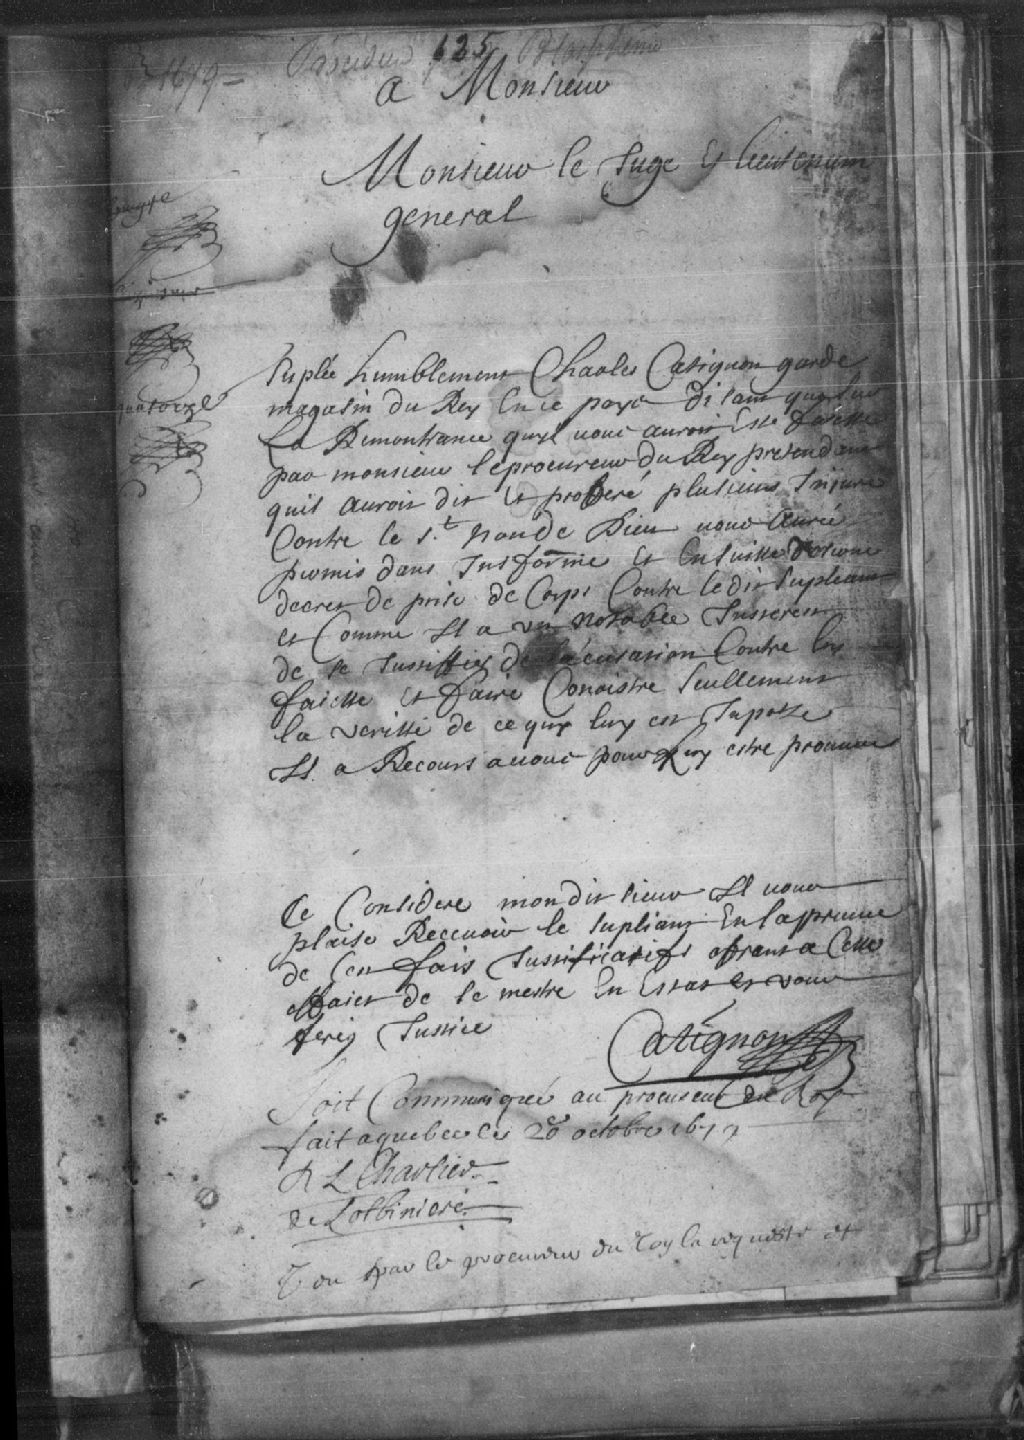 1679 - 125
a Monsieur
Monsieur le Juge et lieutenant
general
Suplie humblement Charles Catignon garde
magasin du Roy En ce pays disant que sur
La Remontrance quil vous auroit Esté faitte
par monsieur le procureur du Roy pretendant
quil auroit dit et proferé plusieurs Injure
Contre le s.t non de Dieu vous auriez
permis dans Informé et Ensuitte
decret de prise de Corps Contre le dit Supleant
et Comme Il a un notable Interest
de se Justiffier de lacusation Contre luy
faiette et faire Conoistre Seullement
la veritté de ce quy luy est Inposse
Il a Recours a vous pour luy estre pourveu
Ce Considere mondit sieur Il vous
plaise Recevoir le supliant En la preuve
de Ces fais Justificatifs ofrant a Cette
de se mestre En Estat et vous
ferez Justice
Catignon
Soit Communiqué au procureur du Roy
fait a quebec le 20 octobre 1679
R L Chartier
de Lotbiniere
Veu par le procureur du Roy la requeste et
quatorze